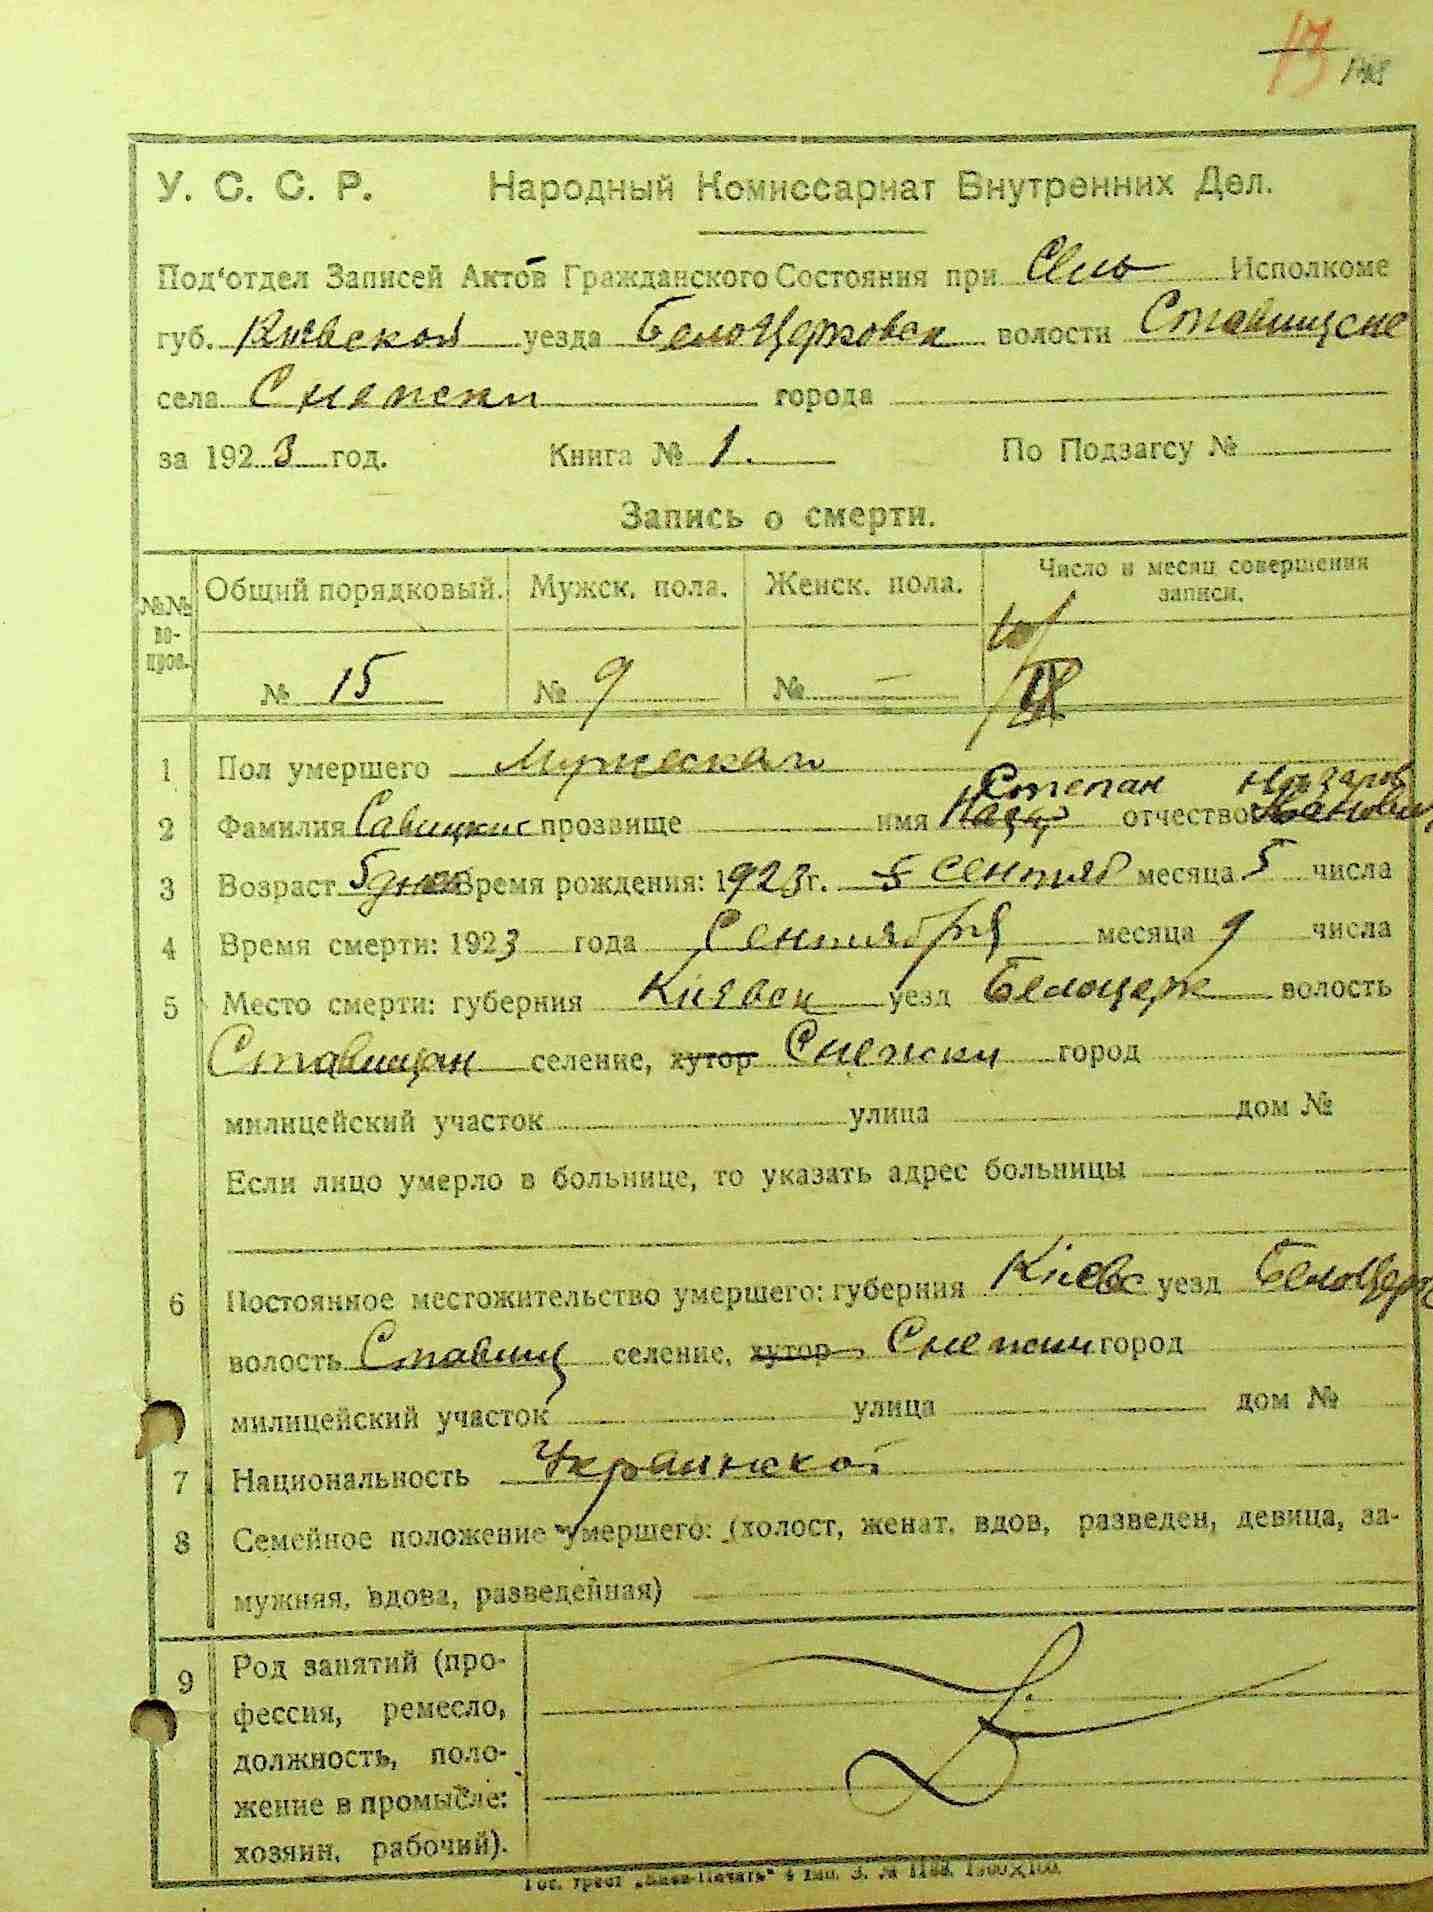 13
У. С. С. Р. Народный Комиссариат Внутренних Дел.
Под'отдел Записей Актов Гражданского Состояния при Сель Исполкоме
губ. Киевской уезда Белоцерковск волости Ставищске
села Снежки города
за 1923 год. Книга № 1. По Подзагсу №
Запись о смерти.
№№ вопров. Общий порядковый. Мужск. пола. Женск. пола. Число и месяц совершения записи.
№ 15 № 9 № — 10/IX
1 Пол умершего Мужеская
Степан Назаров
2 Фамилия Савицкис прозвище имя отчество
3 Возраст 5 дней Время рождения: 1923 г. 5 сентяб месяца 5 числа
4 Время смерти: 1923 года Сентября месяца 9 числа
5 Место смерти: губерния Киевск уезд Белоцерк волость
Ставищан селение, хутор Снежки город
милицейский участок улица дом №
Если лицо умерло в больнице, то указать адрес больницы
6 Постоянное местожительство умершего: губерния Киевс уезд Белоцерк
волость Ставищ селение, хутор Снежки город
милицейский участок улица дом №
7 Национальность Украинской
8 Семейное положение умершего: (холост, женат, вдов, разведен, девица, за-
мужняя, вдова, разведенная)
9 Род занятий (про-
фессия, ремесло,
должность, поло-
жение в промысле:
хозяин, рабочий).
Гос. трест „Киев-Печать“